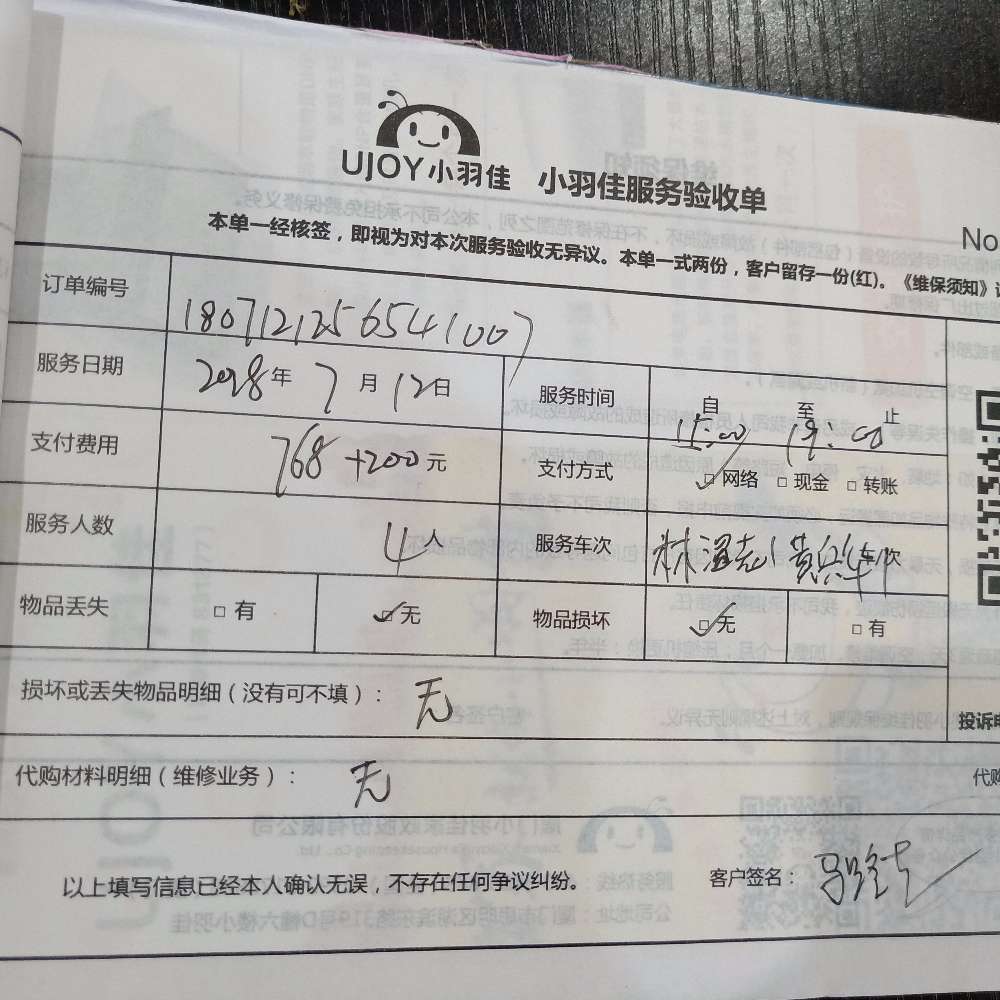 UJOY小羽佳 小羽佳服务验收单
No
本单一经核签，即视为对本次服务验收无异议。本单一式两份，客户留存一份(红)。《维保须知》
订单编号 1807121256541007
服务日期 2018年7月12日 服务时间 自 至 止
15:00 19:00
支付费用 768+200元 支付方式 网络 现金 转账
服务人数 4人 服务车次 车次
物品丢失 有 无 物品损坏 无 有
损坏或丢失物品明细（没有可不填）： 无
投诉电
代购材料明细（维修业务）： 无
代购
以上填写信息已经本人确认无误，不存在任何争议纠纷。 客户签名：